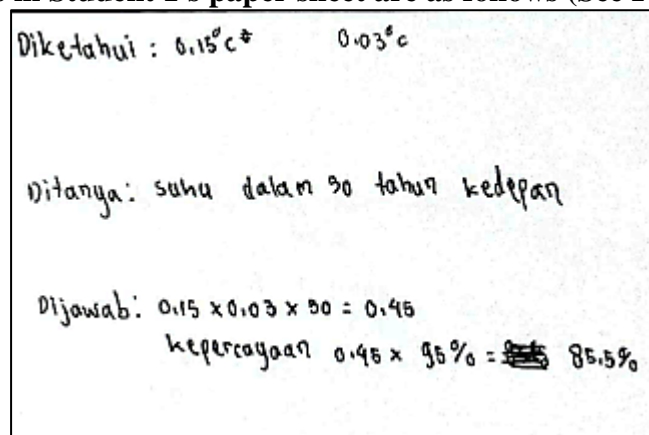 in Student 1's paper sheet are as follows (See
Diketahui : 0.15°C 0.03°C
Ditanya: suhu dalam 30 tahun kedepan
Dijawab: 0.15 x 0.03 x 30 = 0.45
kepercayaan 0.45 x 95% = 85.5%